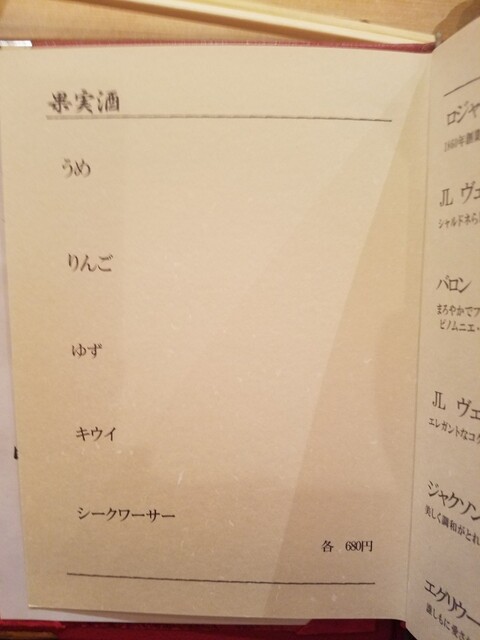 果実酒
うめ
りんご
ゆず
キウイ
シークワーサー
各 680円
ロジャ
1860年創業
JL ヴェ
シャルドネら
パロン
まろやかでフ
ピノムニエー
JL ヴェ
エレガントなコク
ジャクソン
美しく調和がとれ
エグリウー
誰しもに愛さ